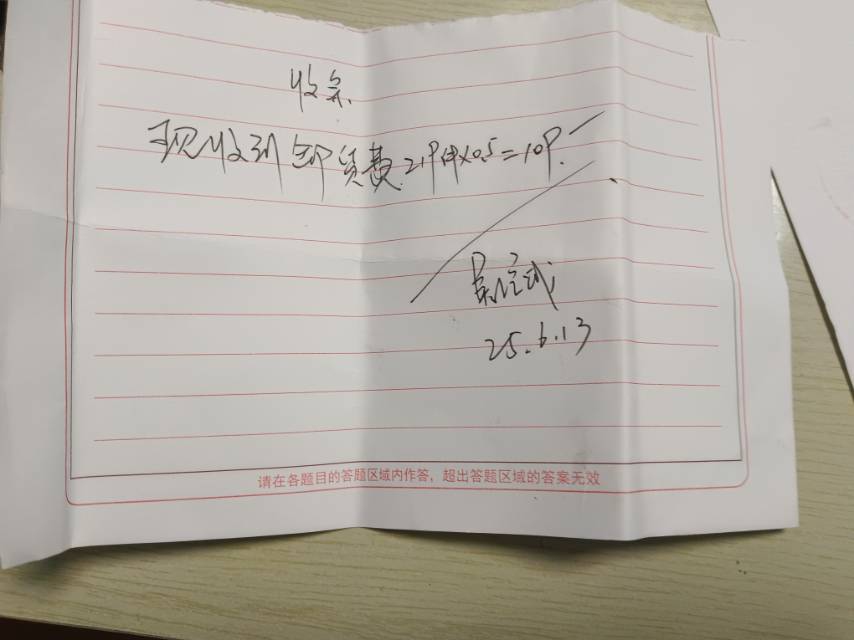 收条
现收到卸货费.219件×0.5=109.
25.6.13
请在各题目的答题区域内作答，超出答题区域的答案无效